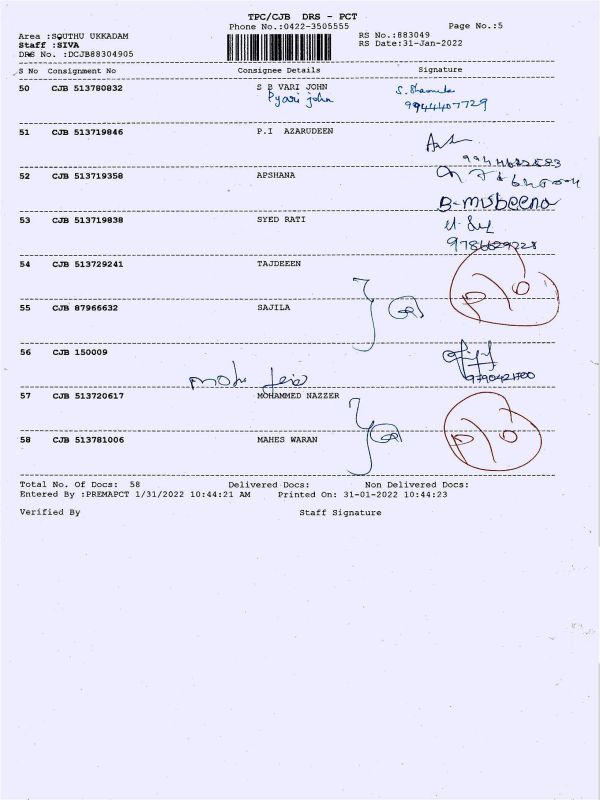 TPC/CJB DRS - PCT
Phone No.:0422-3505555
Page No.:5
Area :SOUTHU UKKADAM
RS No.:883049
Staff :SIVA
RS Date:31-Jan-2022
DRS No. :DCJB88304905
S No Consignment No Consignee Details Signature
50 CJB 513780832 S B VARI JOHN
Pyari john
9944407729
51 CJB 513719846 P.I AZARUDEEN
52 CJB 513719358 APSHANA
B-musbeena
53 CJB 513719838 SYED RATI
9786629228
54 CJB 513729241 TAJDEEEN
55 CJB 87966632 SAJILA
56 CJB 150009
57 CJB 513720617 MOHAMMED NAZZER
58 CJB 513781006 MAHES WARAN
Total No. Of Docs: 58 Delivered Docs: Non Delivered Docs:
Entered By :PREMAPCT 1/31/2022 10:44:21 AM Printed On: 31-01-2022 10:44:23
Verified By Staff Signature